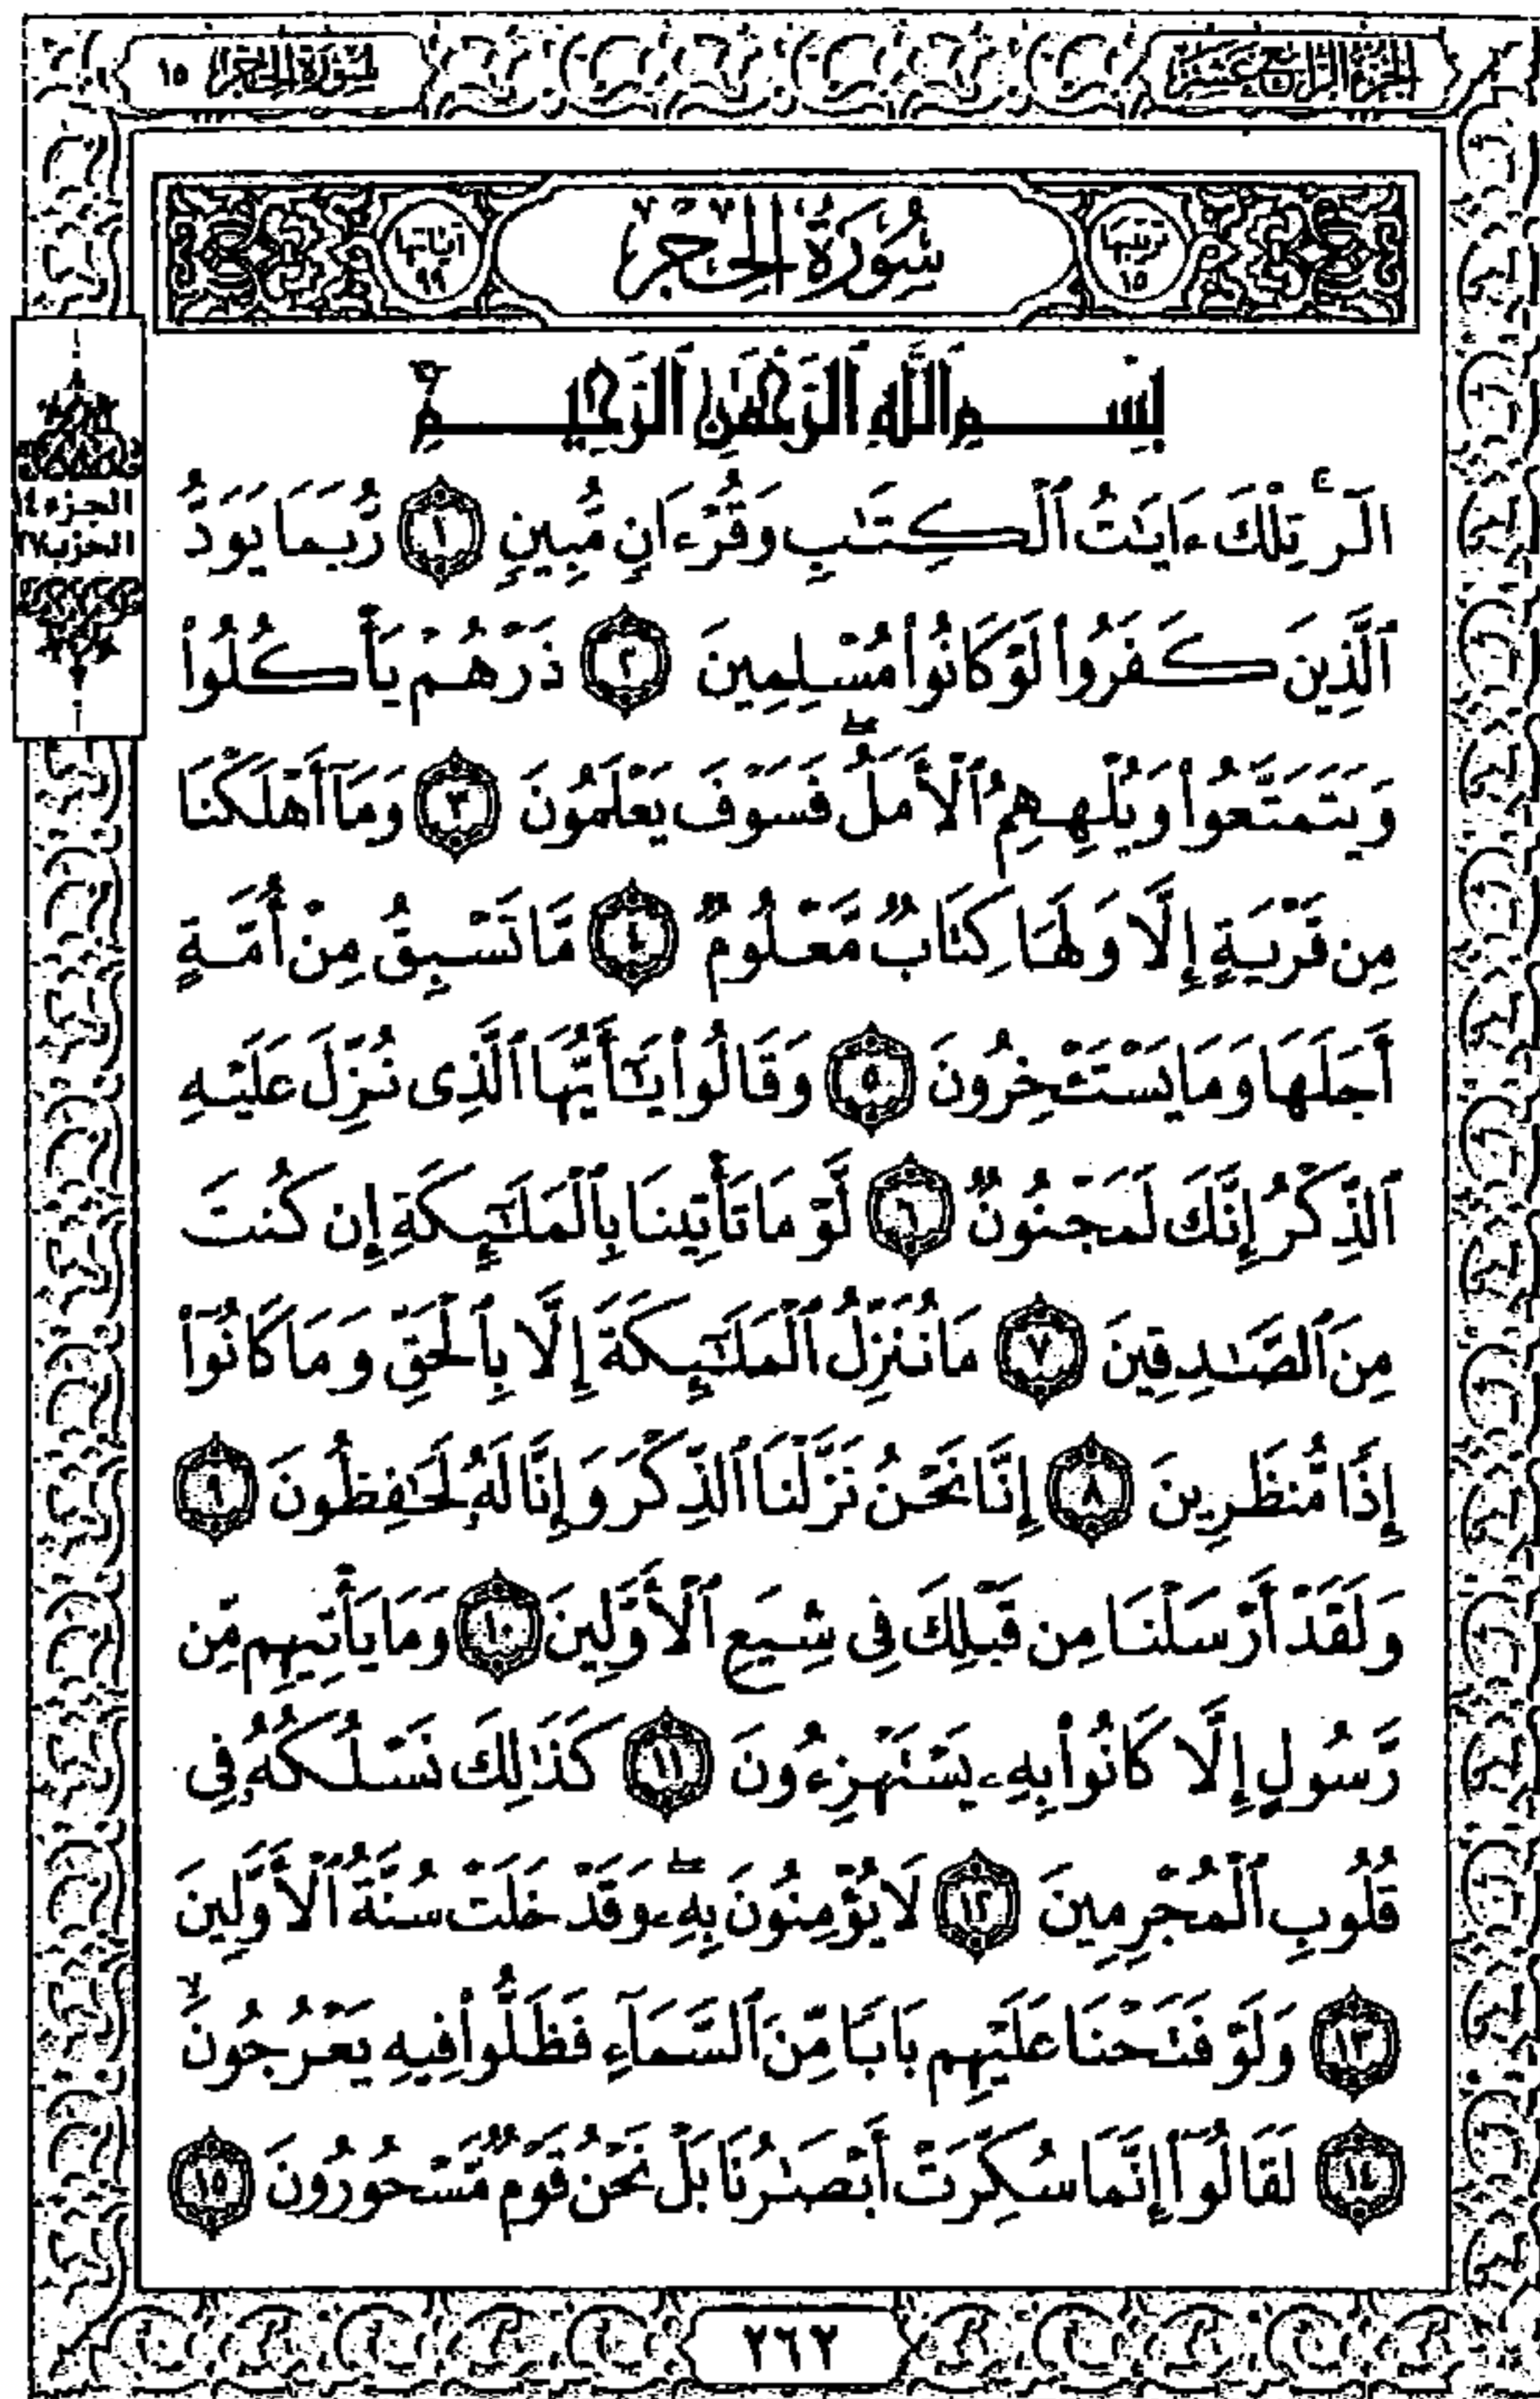 الجزء الرابع عشر
سورة الحجر ١٥
ترتيبها ١٥
سُورَةُ الحِجْرِ
آياتها ٩٩
بِسْمِ ٱللَّهِ ٱلرَّحْمَٰنِ ٱلرَّحِيمِ
الجزء ١٤
الحزب ٢٧
الٓرۚ تِلْكَ ءَايَٰتُ ٱلْكِتَٰبِ وَقُرْءَانٍ مُّبِينٍ ١ رُّبَمَا يَوَدُّ
ٱلَّذِينَ كَفَرُوا۟ لَوْ كَانُوا۟ مُسْلِمِينَ ٢ ذَرْهُمْ يَأْكُلُوا۟
وَيَتَمَتَّعُوا۟ وَيُلْهِهِمُ ٱلْأَمَلُۖ فَسَوْفَ يَعْلَمُونَ ٣ وَمَآ أَهْلَكْنَا
مِن قَرْيَةٍ إِلَّا وَلَهَا كِتَابٌ مَّعْلُومٌ ٤ مَّا تَسْبِقُ مِنْ أُمَّةٍ
أَجَلَهَا وَمَا يَسْتَـْٔخِرُونَ ٥ وَقَالُوا۟ يَٰٓأَيُّهَا ٱلَّذِى نُزِّلَ عَلَيْهِ
ٱلذِّكْرُ إِنَّكَ لَمَجْنُونٌ ٦ لَّوْ مَا تَأْتِينَا بِٱلْمَلَٰٓئِكَةِ إِن كُنتَ
مِنَ ٱلصَّٰدِقِينَ ٧ مَا نُنَزِّلُ ٱلْمَلَٰٓئِكَةَ إِلَّا بِٱلْحَقِّ وَمَا كَانُوٓا۟
إِذًا مُّنظَرِينَ ٨ إِنَّا نَحْنُ نَزَّلْنَا ٱلذِّكْرَ وَإِنَّا لَهُۥ لَحَٰفِظُونَ ٩
وَلَقَدْ أَرْسَلْنَا مِن قَبْلِكَ فِى شِيَعِ ٱلْأَوَّلِينَ ١٠ وَمَا يَأْتِيهِم مِّن
رَّسُولٍ إِلَّا كَانُوا۟ بِهِۦ يَسْتَهْزِءُونَ ١١ كَذَٰلِكَ نَسْلُكُهُۥ فِى
قُلُوبِ ٱلْمُجْرِمِينَ ١٢ لَا يُؤْمِنُونَ بِهِۦۖ وَقَدْ خَلَتْ سُنَّةُ ٱلْأَوَّلِينَ
١٣ وَلَوْ فَتَحْنَا عَلَيْهِم بَابًا مِّنَ ٱلسَّمَآءِ فَظَلُّوا۟ فِيهِ يَعْرُجُونَۙ
١٤ لَقَالُوٓا۟ إِنَّمَا سُكِّرَتْ أَبْصَٰرُنَا بَلْ نَحْنُ قَوْمٌ مَّسْحُورُونَ ١٥
٢٦٢